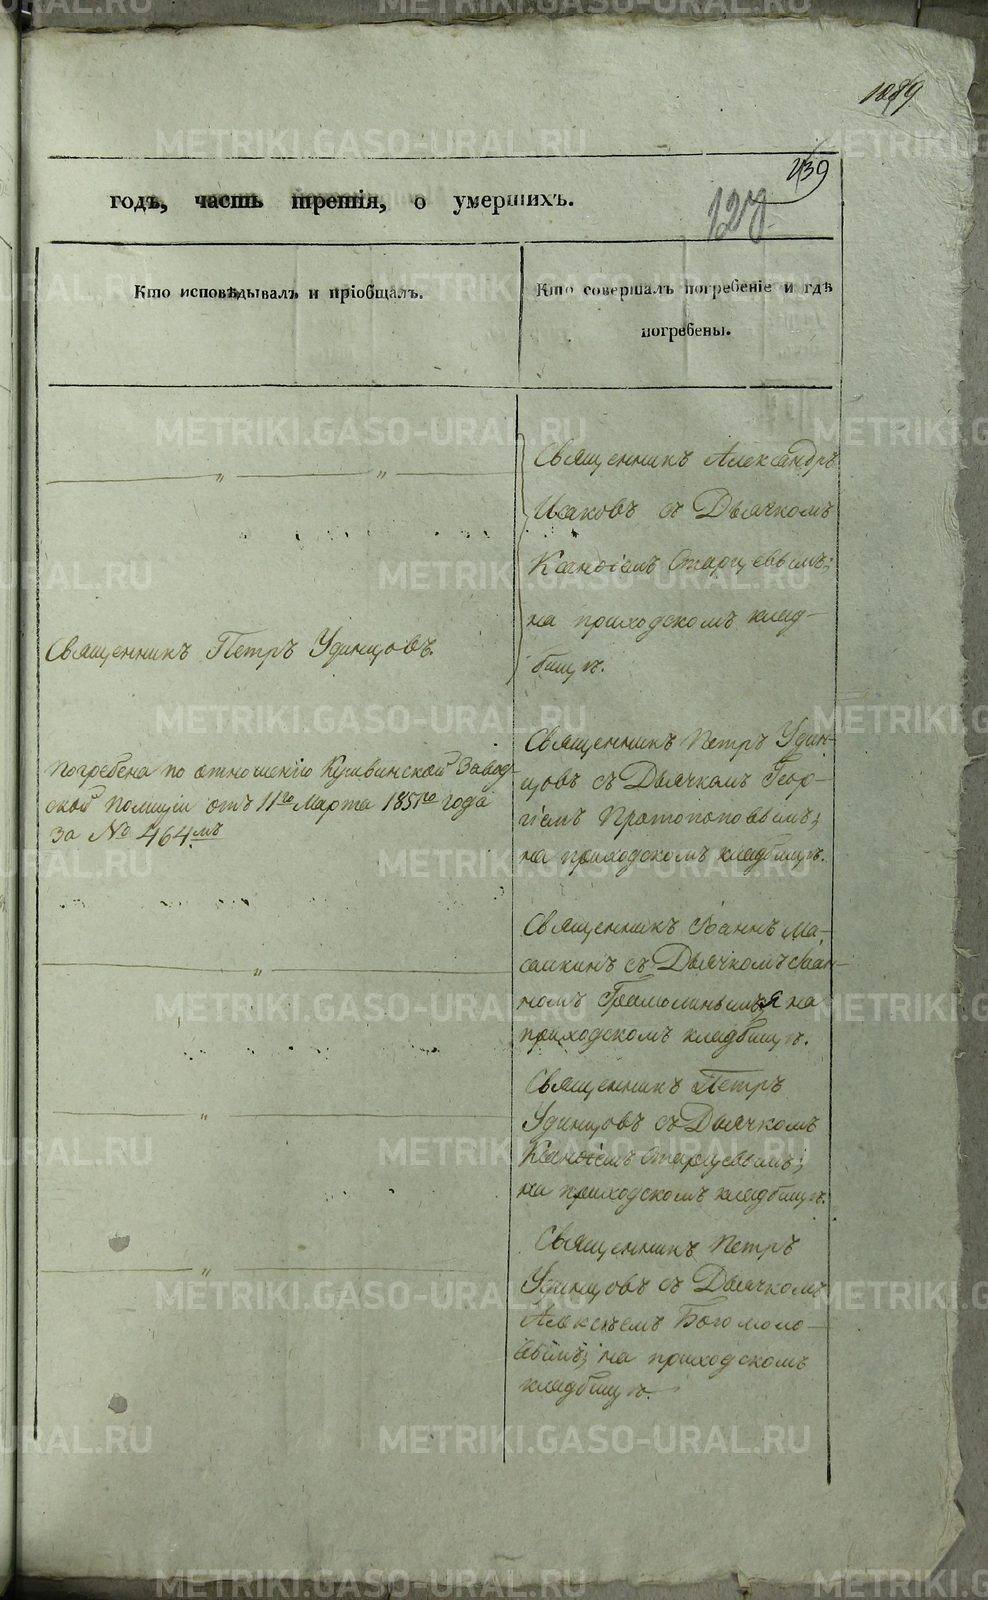 METRIKI.GASO-URAL.RU
1089
239
127
годъ, часть третія, о умершихъ.
Кто исповѣдывалъ и пріобщалъ.
Кто совершалъ погребеніе и гдѣ
погребены.
Священникъ Александръ
Исаковъ съ Дьячкомъ
Старцевымъ;
на приходскомъ клад-
бищѣ.
Священникъ Петръ Удинцовъ.
Погребена по отношенію Кушвинской Завод-
ской полиціи отъ 11го Марта 1851го года
за № 464мъ
Священникъ Петръ Удин-
цовъ съ Дьячкомъ Геор-
гіемъ Протопоповымъ;
на приходскомъ кладбищѣ.
Священникъ Іоаннъ Ма-
съ Дьячкомъ Іоан-
номъ на
приходскомъ кладбищѣ.
Священникъ Петръ
Удинцовъ съ Дьячкомъ
Старцевымъ;
на приходскомъ кладбищѣ.
Священникъ Петръ
Удинцовъ съ Дьячкомъ
Алексѣемъ Богомоло-
вымъ; на приходскомъ
кладбищѣ.